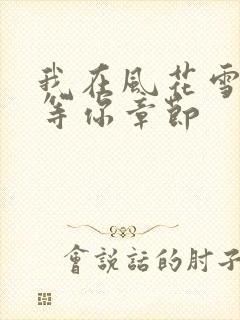 我在風花雪
等你章節
會說話的肘子